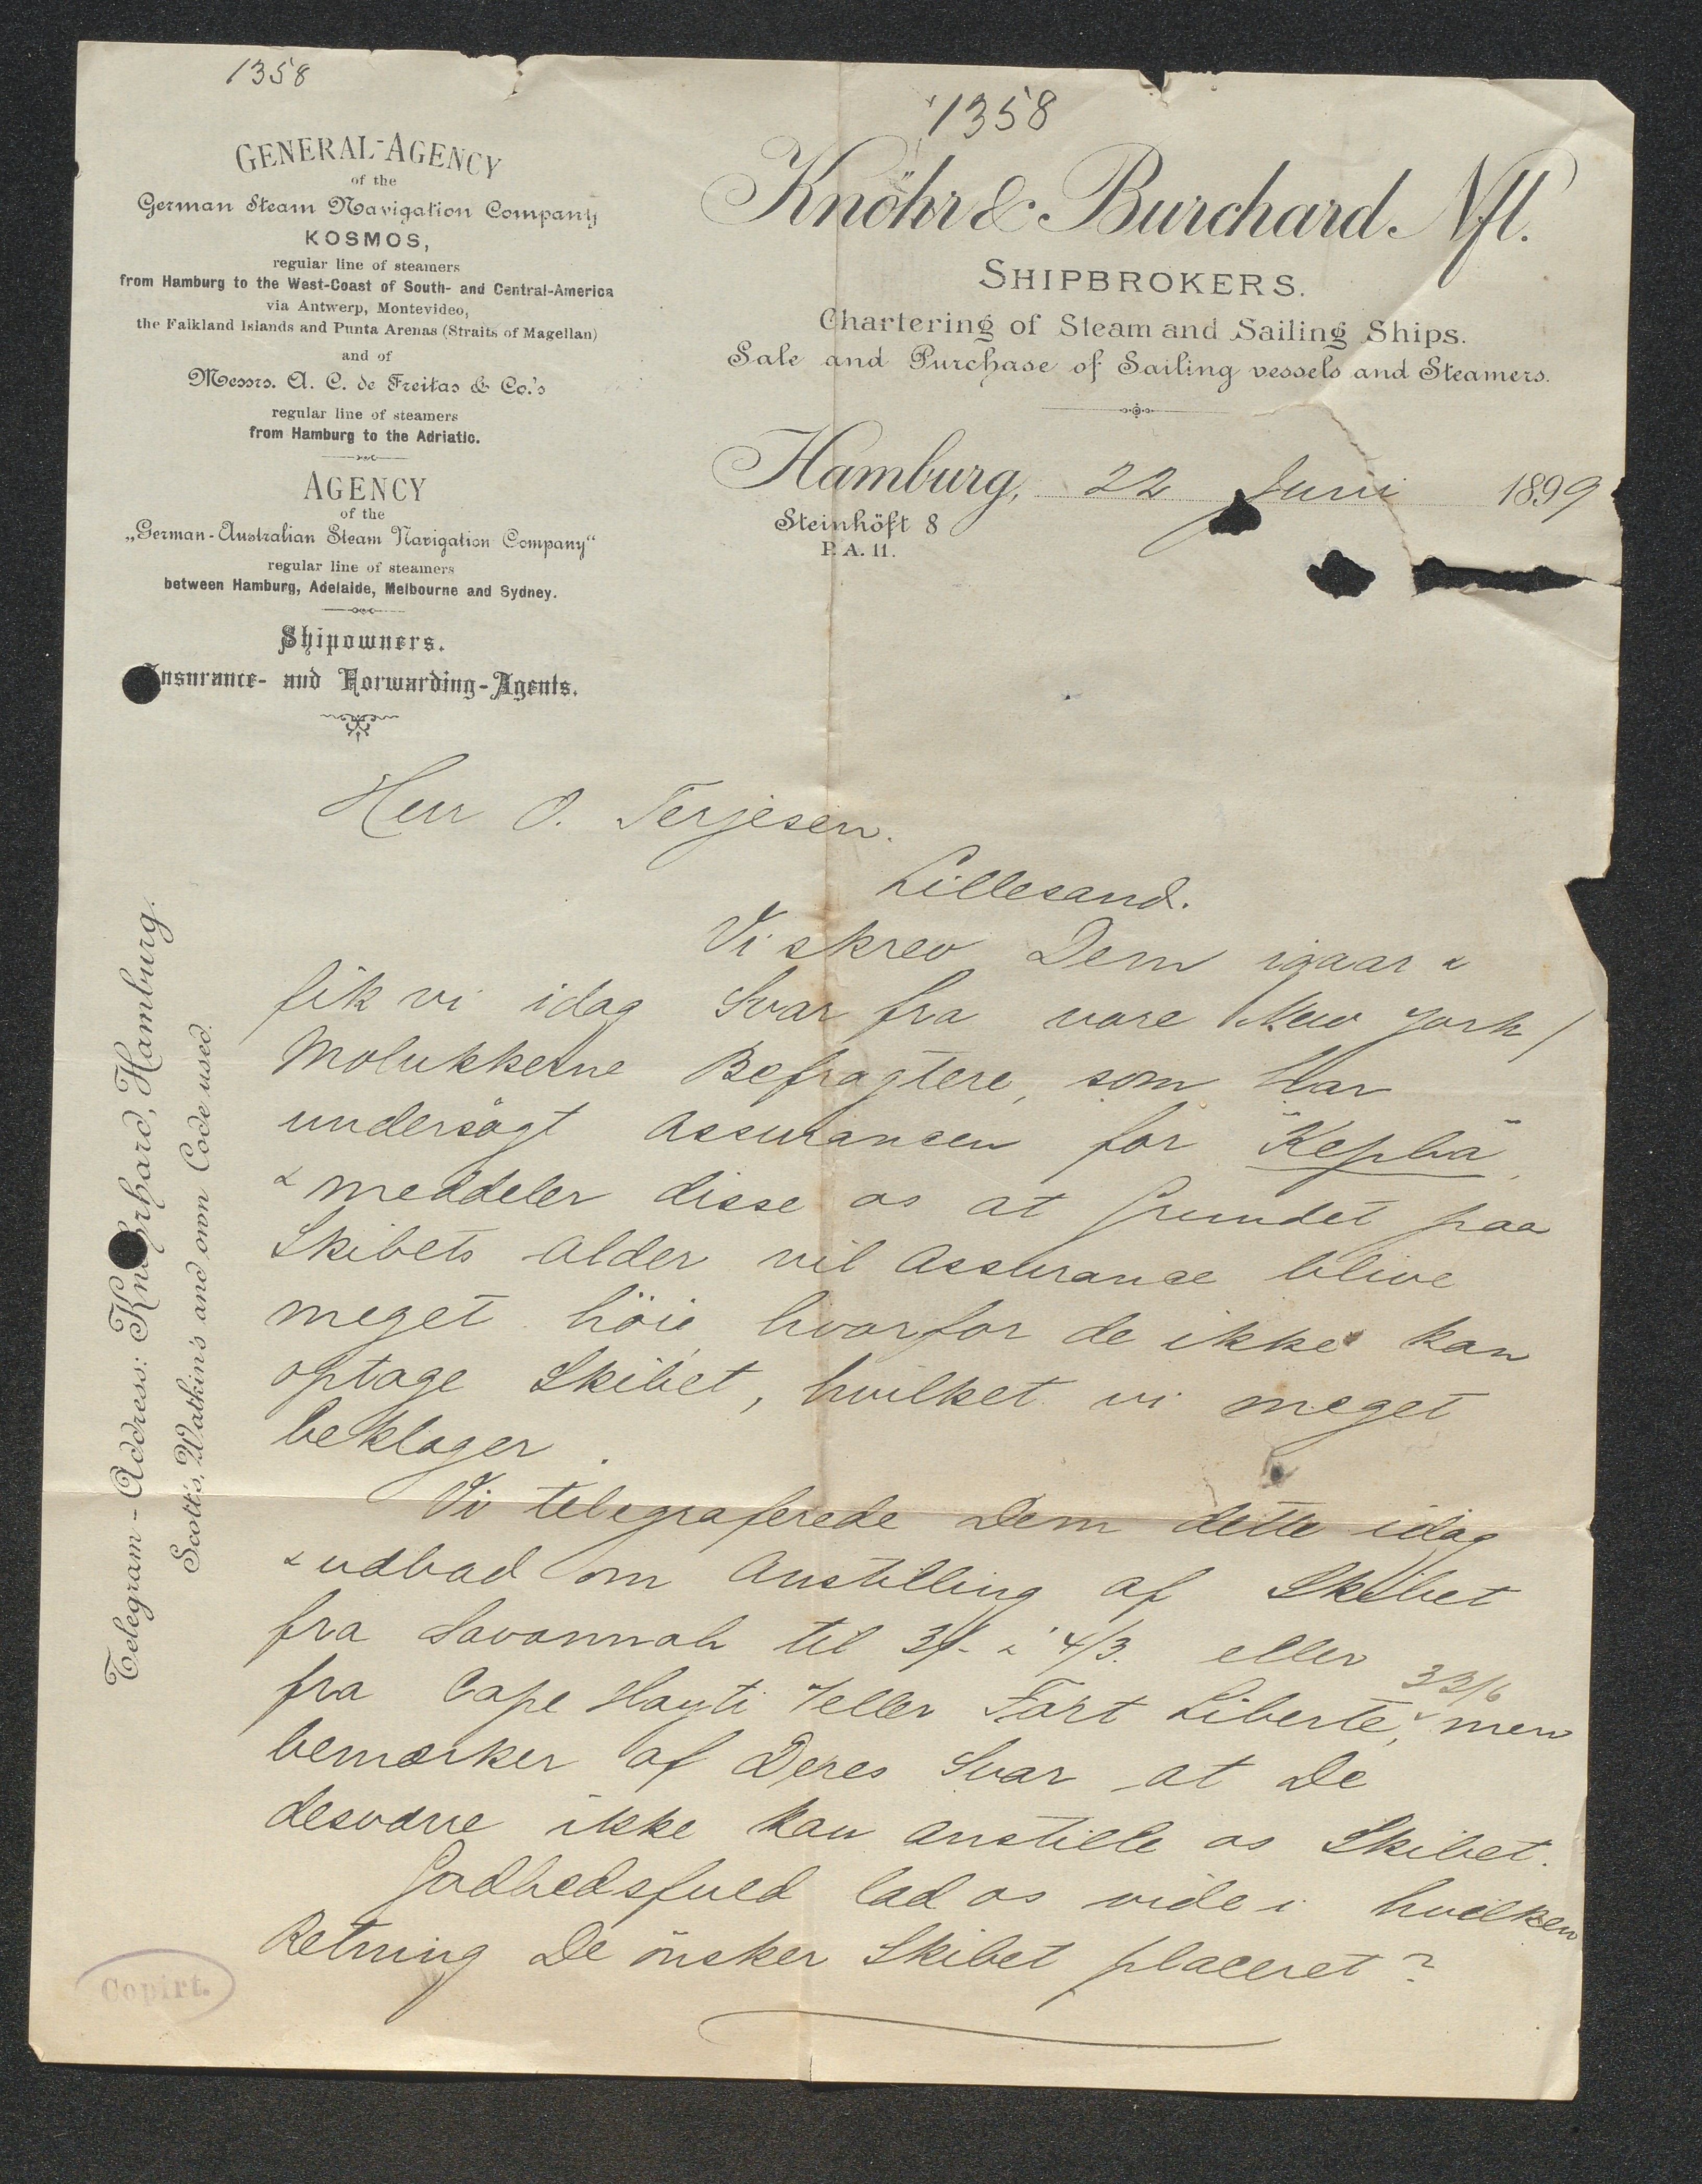 1358
1358
GENERAL-AGENCY
of the
German Steam Navigation Company
KOSMOS,
regular line of steamers
from Hamburg to the West-Coast of South- and Central-America
via Antwerp, Montevideo,
the Falkland Islands and Punta Arenas (Straits of Magellan)
and of
Messrs. A. C. de Freitas & Co.'s
regular line of steamers
from Hamburg to the Adriatic.
AGENCY
of the
„German-Australian Steam Navigation Company“
regular line of steamers
between Hamburg, Adelaide, Melbourne and Sydney.
Shipowners.
Insurance- and Forwarding-Agents.
Knöhr & Burchard Nfl.
SHIPBROKERS.
Chartering of Steam and Sailing Ships.
Sale and Purchase of Sailing vessels and Steamers.
Hamburg, 22 Juni 1899
Steinhöft 8
P. A. 11.
Telegram-Address: Knörhard, Hamburg.
Scott's, Watkin's and own Code used.
Herr O. Terjesen.
Lillesand.
Vi skrev Dem igaar &
fik vi idag Svar fra vore New York/
Molukkerne Befragtere, som har
undersögt Assurancen for "Kepha"
& meddeler disse os at Grundet paa
Skibets alder vil Assurance blive
meget höie hvorfor de ikke kan
optage Skibet, hvilket vi meget
beklager.
Vi telegraferede Dem dette idag
& udbad om Anstilling af Skibet
fra Savannah til 3/- à 4/3. eller
fra Cape Hayti eller Fort Liberté, 33/6 men
bemærker af Deres Svar at De
desværre ikke kan anstille os Skibet.
Godhedsfuld lad os vide i hvilken
Retning De önsker Skibet placeret?
Copirt.